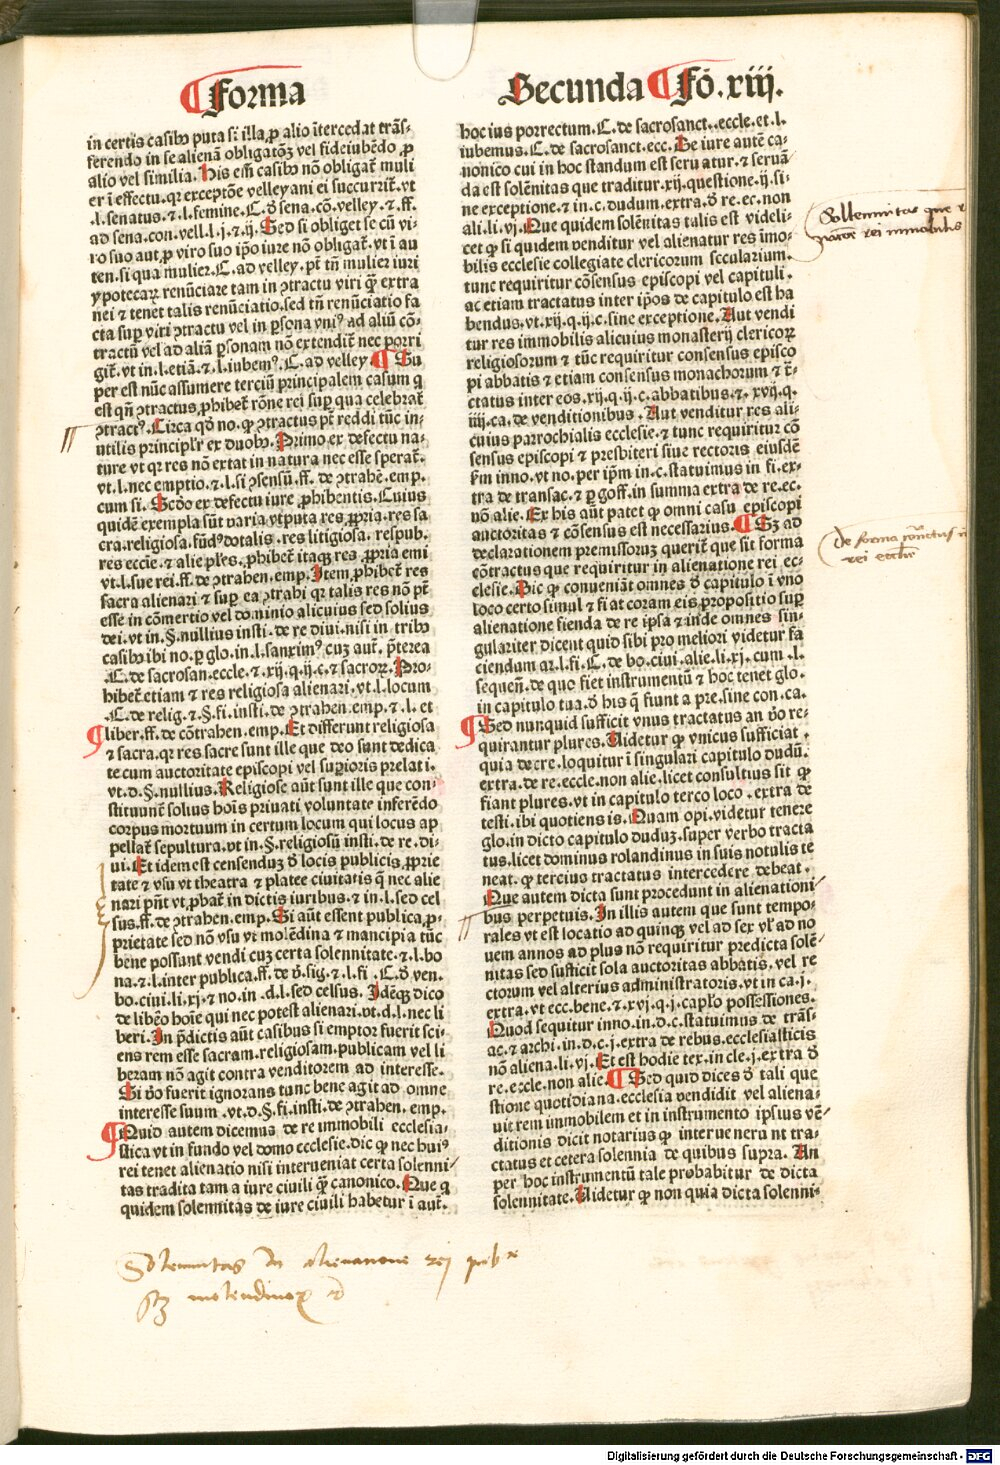 ¶ Forma
Secunda ¶ Fō. xiij.
in certis casibꝰ puta si illa ꝓ alio ītercedat trāſ-
ferendo in se alienā obligatōꝫ vel fideiubēdo ꝓ
alio vel similia. His em̄ casibꝰ nō obligat̄ muli
er ī effectu.qꝛ exceptōe velleyani ei succurrit̄.vt
.l.senatus.⁊.l.femine.C.ď sena.cō.velley.⁊.ff.
ad sena.con.vell.l.j.⁊.ij. Sed si obliget se cū vi-
ro suo aut ꝓ viro suo ip̄o iure nō obligat̄.vt ī au
ten.si qua mulier.C.ad velley.pt̄ tn̄ mulier iuri
ypotecaꝝ renūciare tam in ꝯtractu viri qꝫ̄ extra
nei ⁊ tenet talis renūciatio.sed tn̄ renūciatio fa
cta suꝑ viri ꝯtractu vel in ꝑsona vniꝰ ad aliū cō-
tractū vel ad aliā ꝑsonam nō extendit̄ nec porri
git̄.vt in.l.etiā.⁊.l.iubemꝰ.C.ad velley ¶ Su
per est nūc assumere terciū principalem casum q
est qn̄ ꝯtractus ꝓhibet̄ rōne rei suꝑ qua celebrat̄
ꝯtractꝰ. Circa qď no. ꝙ ꝯtractus pt̄ reddi tūc in-
utilis principlr̄ ex duobꝰ. Primo ex defectu na-
ture vt qꝛ res nō extat in natura nec esse sperat̄.
vt.l.nec emptio.⁊.l.si ꝯsensū.ff.de ꝯtrahē.emp.
cum si. Scďo ex defectu iure ꝓhibentis. Cuius
quidē exempla sūt varia vtputa res ꝓpria.res sa
cra.religiosa.fūdꝰ dotalis.res litigiosa.respub.
res eccłie.⁊ alie pl̄es.ꝓhibet̄ itaqꝫ res ꝓpria emi
vt.l.sue rei.ff.de ꝯtrahen.emp. Item ꝓhibet̄ res
sacra alienari ⁊ suꝑ ea ꝯtrahi qꝛ talis res nō pt̄
esse in cōmertio vel dominio alicuius sed solius
dei.vt in.§.nullius insti.de re diui.nisi in tribꝰ
casibꝰ ibi no.ꝑ glo.in.l.sanximꝰ cuꝫ aut̄.p̄terea
.C.de sacrosan.eccle.⁊.xij.q.ij.c.⁊ sacroꝝ. Pro-
hibet̄ etiam ⁊ res religiosa alienari.vt.l.locum
.C.de relig.⁊.§.fi.insti.de ꝯtrahen.emp.⁊.l.et
liber.ff.de cōtrahen.emp. Et differunt religiosa
⁊ sacra.qꝛ res sacre sunt ille que deo sunt dedica
te cum auctoritate episcopi vel suꝑioris prelati.
vt.d.§.nullius. Religiose aūt sunt ille que con-
stituunt̄ solius hoīs priuati voluntate inferēdo
corpus mortuum in certum locum qui locus ap
pellat̄ sepultura.vt in.§.religiosū insti.de re.di-
ui. Et idem est censenduꝫ ď locis publicis ꝓprie
tate ⁊ vsū vt theatra ⁊ platee ciuitatis q̄ nec alie
nari pn̄t vt ꝓbat̄ in dictis iuribus.⁊ in.l.sed cel
sus.ff.de ꝯtrahen.emp. Si aūt essent publica ꝓ-
prietate sed nō vsu vt molēdina ⁊ mancipia tūc
bene possunt vendi cuꝫ certa solennitate.⁊.l.bo
na.⁊.l.inter publica.ff.de v̄.sig.⁊.l.fi.C.ď ven.
bo.ciui.li.xj.⁊ no.in.d.l.sed celsus. Idēqꝫ dico
de libero hoīe qui nec potest alienari.vt.d.l.nec li
beri. In p̄dictis aūt casibus si emptor fuerit sci-
ens rem esse sacram.religiosam.publicam vel li
beram nō agit contra venditorem ad interesse.
Si v̄o fuerit ignorans tunc bene agit ad omne
interesse suum.vt.d.§.fi.insti.de ꝯtrahen.emp.
Quid autem dicemus de re immobili ecclesia-
stica vt in fundo vel domo ecclesie.dic ꝙ nec huiꝰ
rei tenet alienatio nisi interueniat certa solenni
tas tradita tam a iure ciuili qꝫ̄ canonico. Que q
quidem solennitas de iure ciuili habetur ī aut̄.
hoc ius porrectum.C.de sacrosanct.eccle.et.l.
iubemus.C.de sacrosanct.ecc. De iure autē ca-
nonico cui in hoc standum est seruatur.⁊ seruā-
da est solēnitas que traditur.xij.questione.ij.si-
ne exceptione.⁊ in.c.dudum.extra.ď re.ec.non
ali.li.vj. Que quidem solēnitas talis est videli-
cet ꝙ si quidem venditur vel alienatur res īmo-
bilis ecclesie collegiate clericorum seculariu­m.
tunc requiritur cōsensus episcopi vel capituli.
ac etiam tractatus inter ip̄os de capitulo est ha
bendus.vt.xij.q.ij.c.sine exceptione. Aut vendi
tur res immobilis alicuius monasterij clericoꝝ
religiosorum ⁊ tūc requiritur consensus episco
pi abbatis ⁊ etiam consensus monachorum ⁊ tr̄-
ctatus inter eos.xij.q.ij.c.abbatibus.⁊.xvij.q.
iiij.ca.de venditionibus. Aut venditur res ali-
cuius parrochialis ecclesie.⁊ tunc requiritur cō
sensus episcopi ⁊ presbiteri siue rectoris eiusdē
ẜm inno.vt no.per ip̄m in.c.statuimus in fi.ex-
tra de transac.⁊ ꝑ goff.in summa extra de re.ec.
nō alie. Ex his aūt patet ꝙ omni casu episcopi
auctoritas ⁊ cōsensus est necessarius. ¶ Sꝫ ad
declarationem premissoruꝫ querit̄ que sit forma
cōtractus que requiritur in alienatione rei ec-
clesie. Dic ꝙ conueniāt omnes ď capitulo ī vno
loco certo simul ⁊ fiat coram eis propositio suꝑ
alienatione fienda de re ip̄sa ⁊ inde omnes sin-
gulariter dicent quid sibi pro meliori videtur fa
ciendum ar.l.fi.C.de bo.ciui.alie.li.xj.cum.l.
sequen̄.de quo fiet instrumentū ⁊ hoc tenet glo.
in capitulo tua.ď his q̄ fiunt a pre.sine con.ca.
Sed nunquid sufficit vnus tractatus an v̄o re-
quirantur plures. Videtur ꝙ vnicus sufficiat.
quia decre.loquitur ī singulari capitulo dudū.
extra.de.re.eccle.non alie.licet consultius sit ꝙ
fiant plures.vt in capitulo terco loco.extra de
testi.ibi quotiens is. Quam opi.videtur tenere
glo.in dicto capitulo duduꝫ.super verbo tracta
tus.licet dominus rolandinus in suis notulis te
neat.ꝙ tercius tractatus intercedere debeat.
Que autem dicta sunt procedunt in alienationi
bus perpetuis. In illis autem que sunt tempo-
rales vt est locatio ad quinqꝫ vel ad sex vl̄ ad no
uem annos ad plus nō requiritur predicta solē-
nitas sed sufficit sola auctoritas abbatis.vel re
ctorum vel alterius administratoris.vt in ca.j.
extra.vt ecc.bene.⁊.xvj.q.j.capl̄o possessiones.
Quod sequitur inno.in.d.c.statuimus de trāſ-
ac.⁊ archi.in.d.c.j.extra de rebus.ecclesiasticis
nō aliena.li.vj. Et est hodie tex.in cle.j.extra ď
re.eccle.non alie. ¶ Sed quid dices ď tali que
stione quotidiana.ecclesia vendidit vel aliena-
uit rem immobilem et in instrumento ipsius vē-
ditionis dicit notarius ꝙ interuenerunt tra-
ctatus et cetera solennia de quibus supra. An
per hoc instrumentū tale probabitur de dicta
solennitate. Videtur ꝙ non quia dicta solenni-
Sollennitas que
rei immobilis
De forma
rei eccłie
Solennitas in alienatione rei
molendinoꝝ
Digitalisierung gefördert durch die Deutsche Forschungsgemeinschaft - DFG